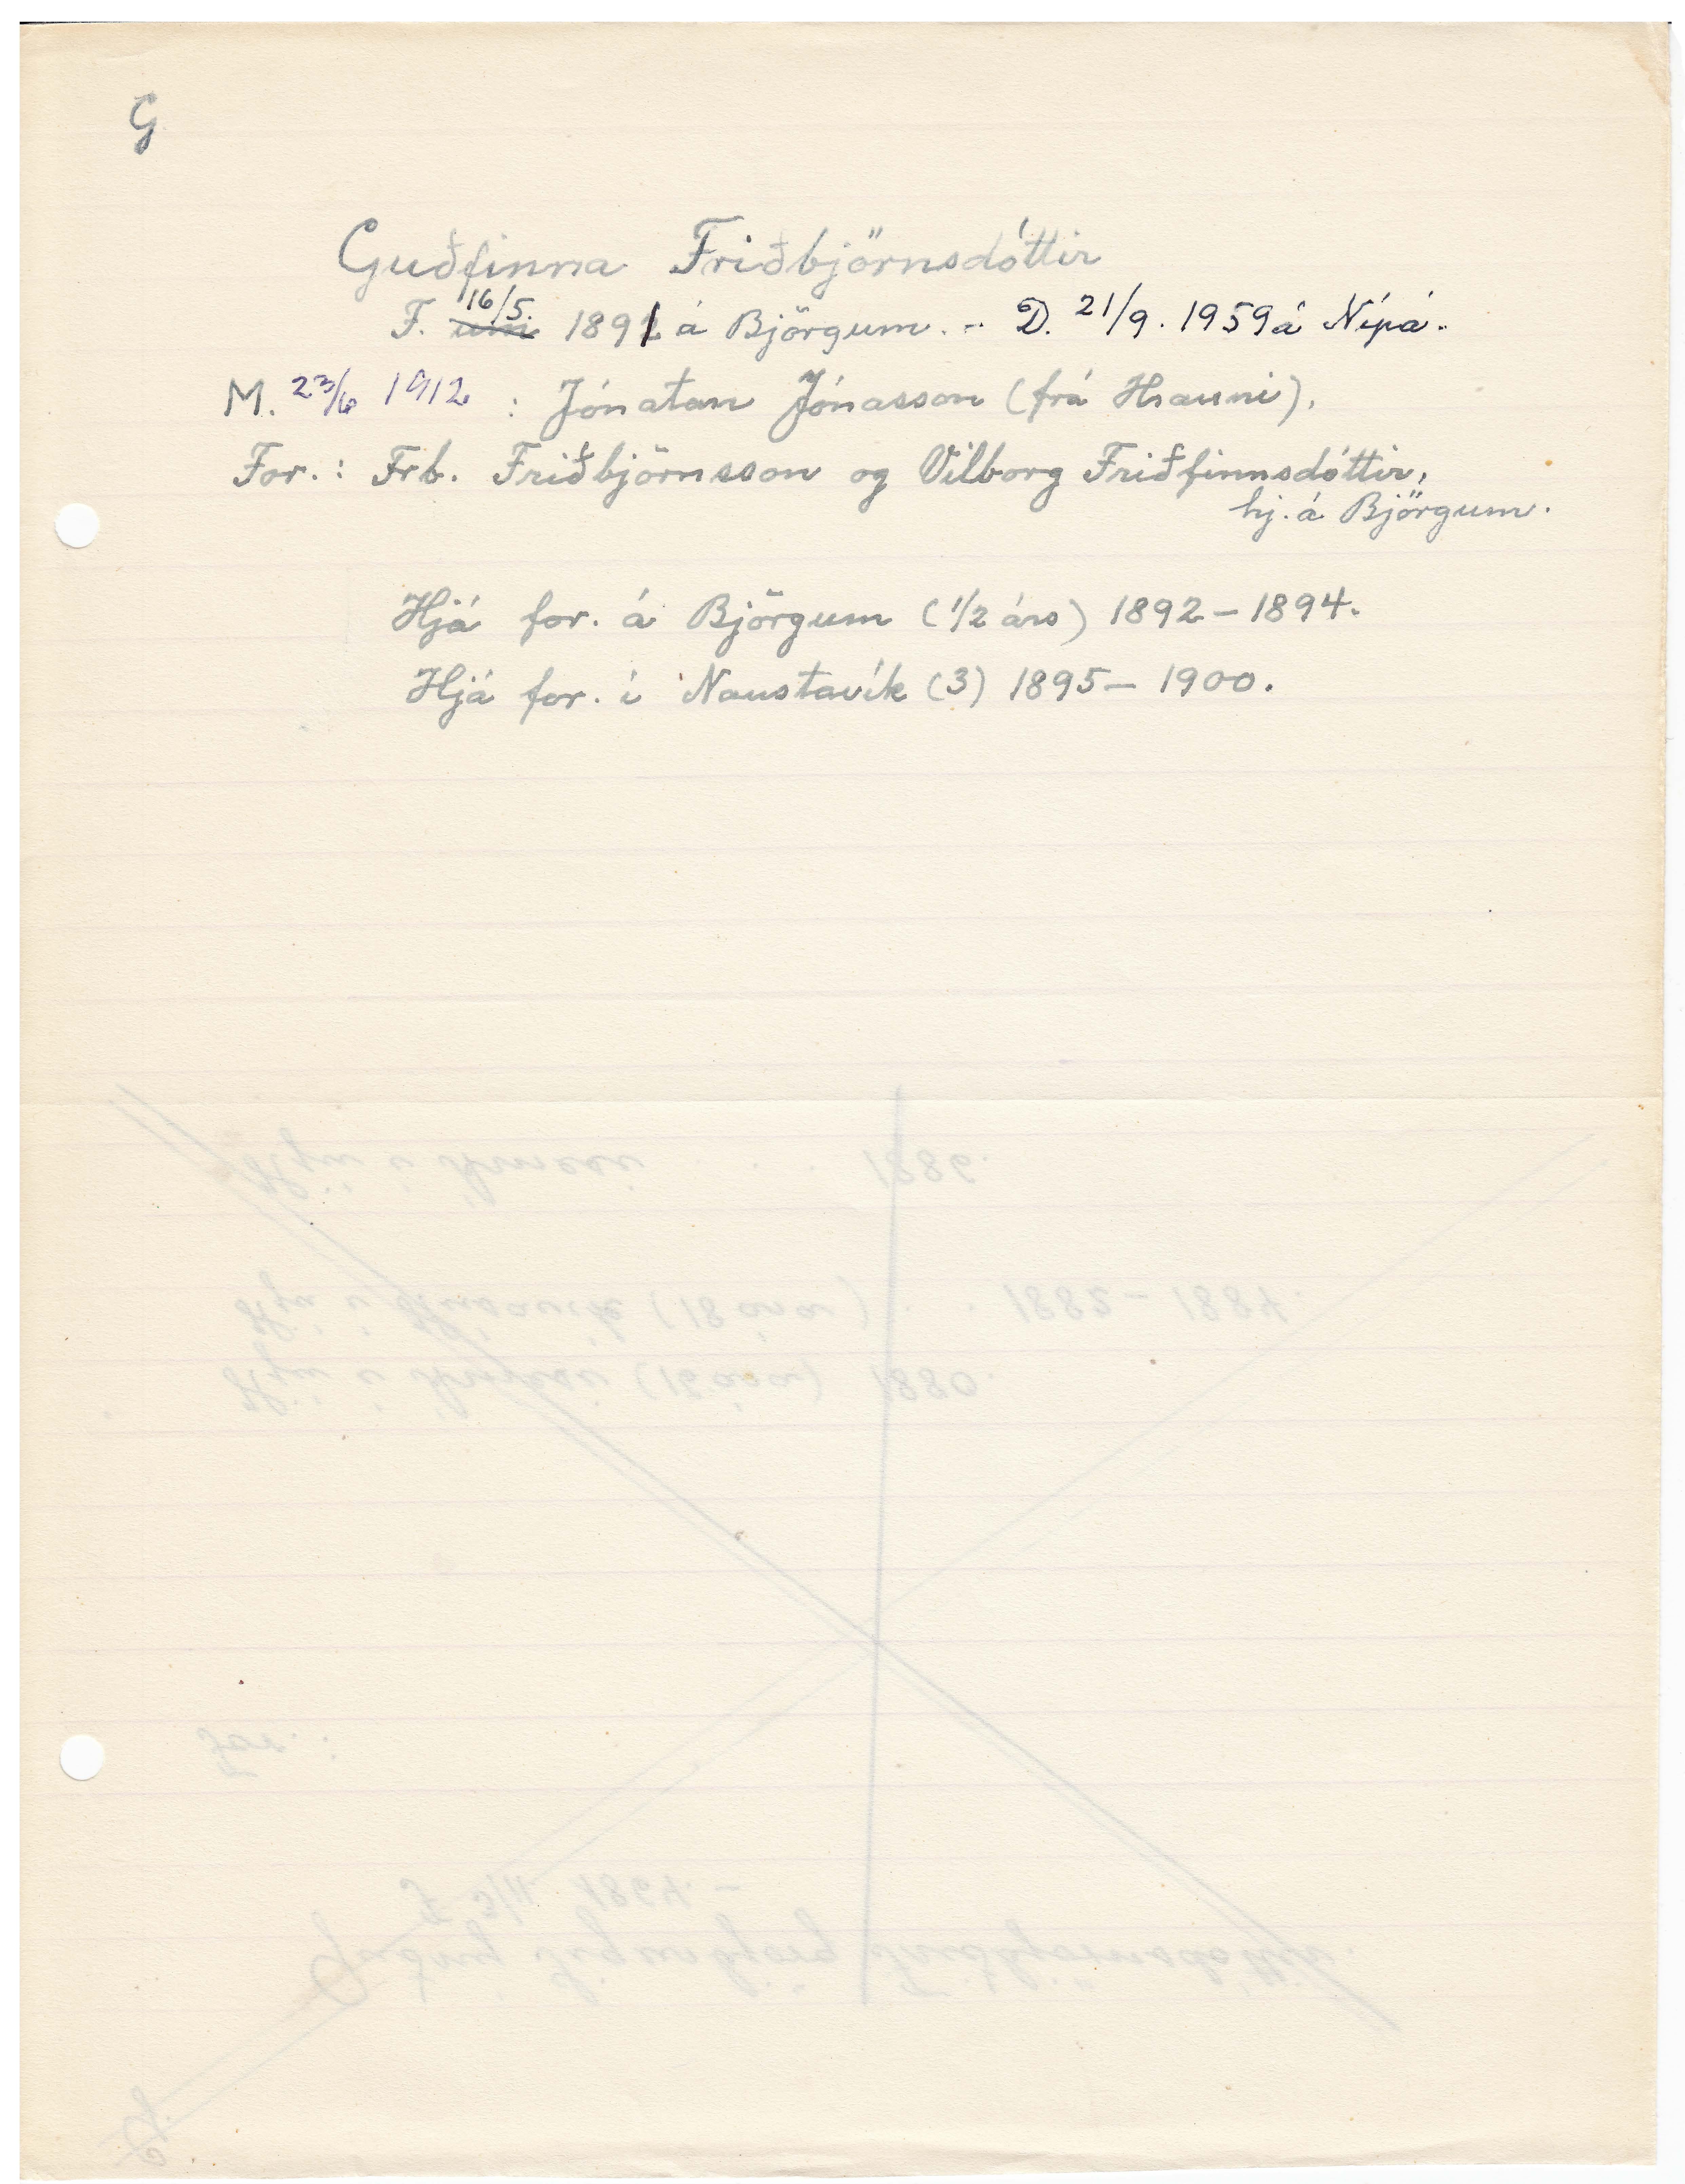 G
Guðfinna Friðbjörnsdóttir
F. um 16/5. 1891 á Björgum. - D. 21/9. 1959 á Nípá.
M. 23/6 1912 : Jónatan Jónasson (frá Hrauni).
For.: Frb. Friðbjörnsson og Vilborg Friðfinnsdóttir,
hj. á Björgum.
Hjá for. á Björgum (1/2 árs) 1892-1894.
Hjá for. í Naustavík (3) 1895-1900.